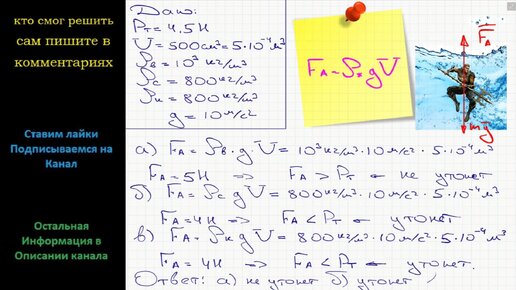 кто смог решить
сам пишите в
комментариях
Ставим лайки
Подписываемся на
Канал
Остальная
Информация в
Описании канала
Дано:
Pт = 4,5 Н
V = 500 см³ = 5·10⁻⁴ м³
ρв = 10³ кг/м³
ρс = 800 кг/м³
ρк = 800 кг/м³
g = 10 м/с²
FA = ρж g V
FA
mg
а) FA = ρв · g V = 10³ кг/м³ · 10 м/с² · 5·10⁻⁴ м³
FA = 5Н => FA > Pт ← не утонет
б) FA = ρс g V = 800 кг/м³ · 10 м/с² · 5·10⁻⁴ м³
FA = 4Н => FA < Pт ← утонет
в) FA = ρк g V = 800 кг/м³ · 10 м/с² · 5·10⁻⁴ м³
FA = 4Н => FA < Pт ← утонет.
Ответ: а) не утонет б) утонет